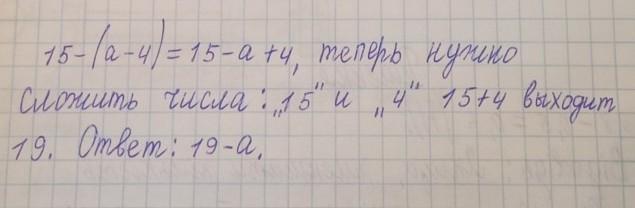 15-(а-4)=15-а+4, теперь нужно
сложить числа: „15" и „4" 15+4 выходит
19. Ответ: 19-а.